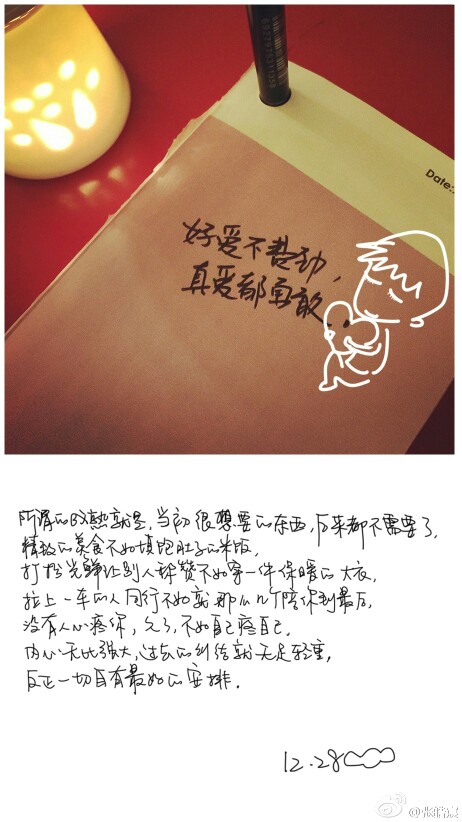 Date:
好爱不费劲,
真爱都勇敢
所谓的成熟就是,当初很想要的东西,后来都不需要了,
精致的美食不如填饱肚子的米饭,
打扮光鲜让别人称赞不如穿一件保暖的大衣,
拉上一车的人同行不如就那么几个陪你到最后,
没有人心疼你,久了,不如自己疼自己,
内心无比强大,过去的纠结就无足轻重,
反正一切自有最好的安排.
12.28